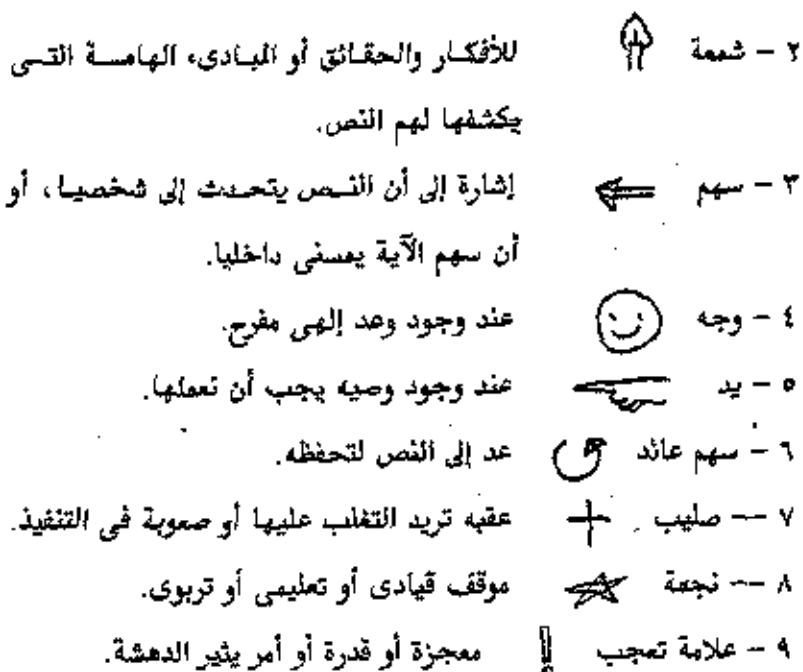 ٢ – شمعة للأفكار والحقائق أو المبادىء الهامة التى
يكشفها لهم النص.
٣ – سهم إشارة إلى أن النص يتحدث إلى شخصيا، أو
أن سهم الآية يمسنى داخليا.
٤ – وجه عند وجود وعد إلهى مفرح.
٥ – يد عند وجود وصيه يجب أن نعملها.
٦ – سهم عائد عد إلى النص لتحفظه.
٧ – صليب عقبه تريد التغلب عليها أو صعوبة فى التنفيذ.
٨ – نجمة موقف قيادى أو تعليمى أو تربوى.
٩ – علامة تعجب معجزة أو قدرة أو أمر يثير الدهشة.